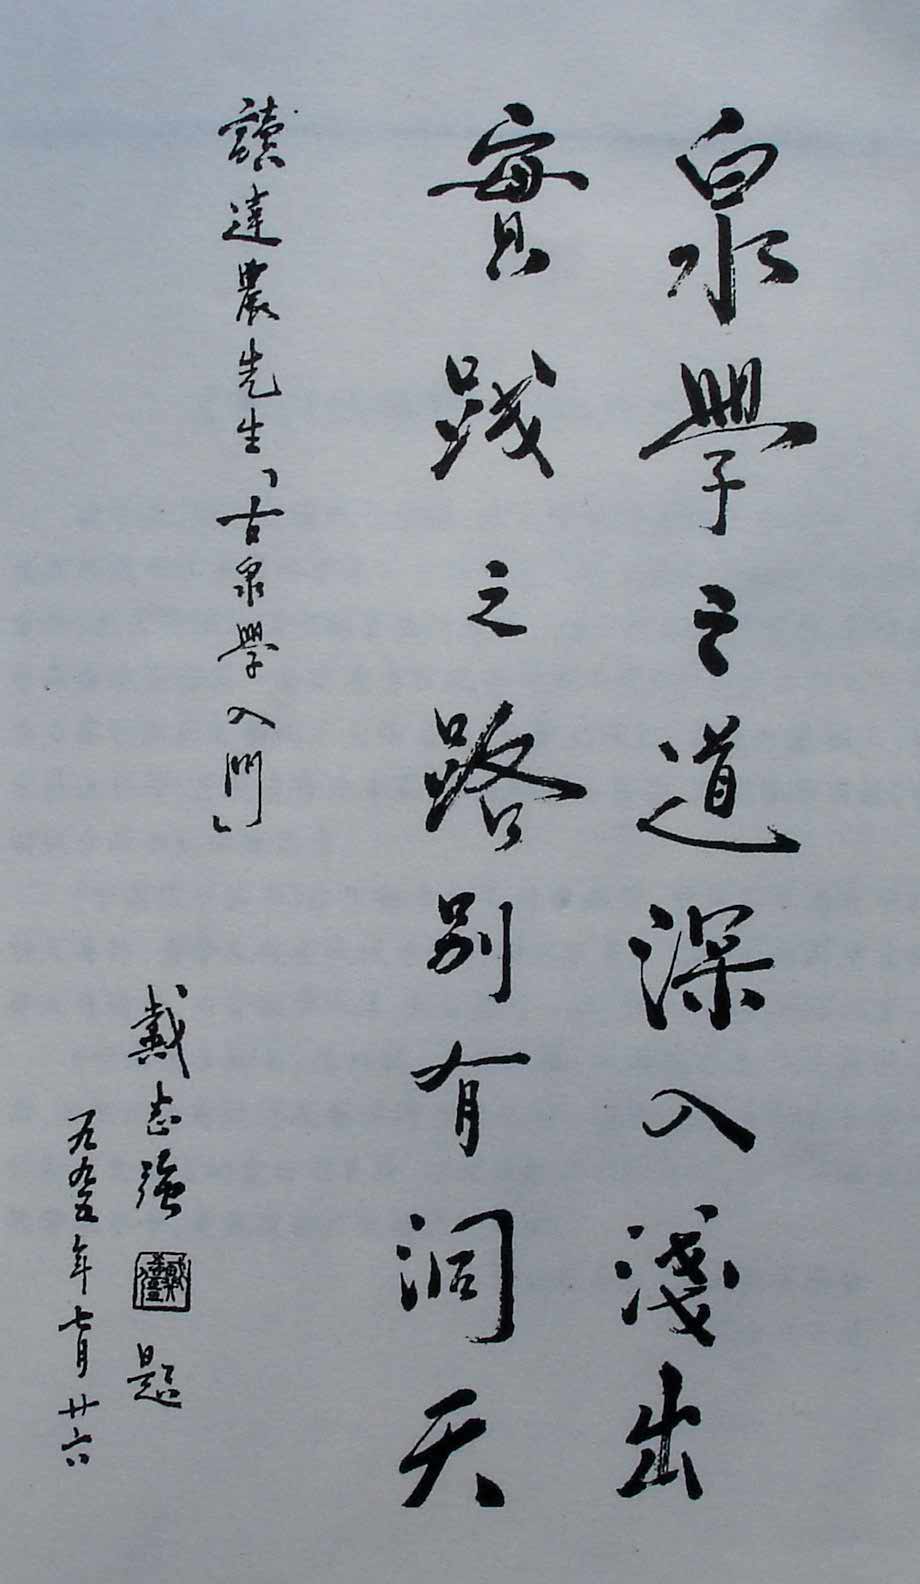 泉學之道深入淺出
實践之路別有洞天
讀達農先生「古泉學入門」
戴志強 題
一九九五年七月廿六